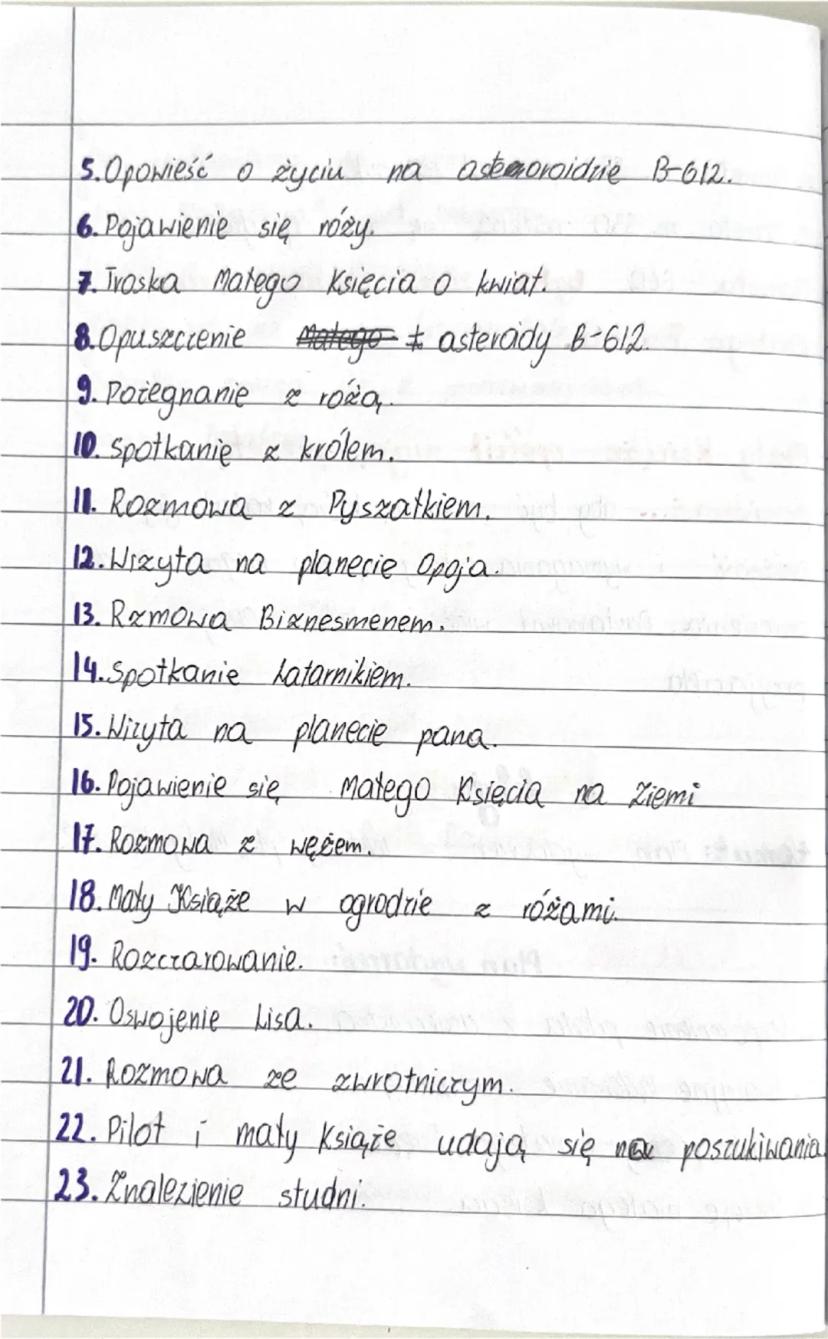 5. Opowieść o życiu na asteroroidzie B-612.
6. Pojawienie się róży.
7. Troska Małego Księcia o kwiat.
8. Opuszczenie Małego z asterady B-612.
9. Pożegnanie z różą
10. Spotkanie z królem.
11. Rozmowa z Pyszałkiem.
12. Wizyta na planecie Opoja.
13. Rzmowa Biznesmenem.
14. Spotkanie Latarnikiem.
15. Wizyta na planecie pana.
16. Pojawienie się Małego Księcia na Ziemi
17. Rozmowa z wężem.
18. Mały Książe w ogrodzie z różami.
19. Rozczarowanie.
20. Oswojenie Lisa.
21. Rozmowa ze zwrotniczym.
22. Pilot i mały Książe udają się na poszukiwania
23. Znalezienie studni.